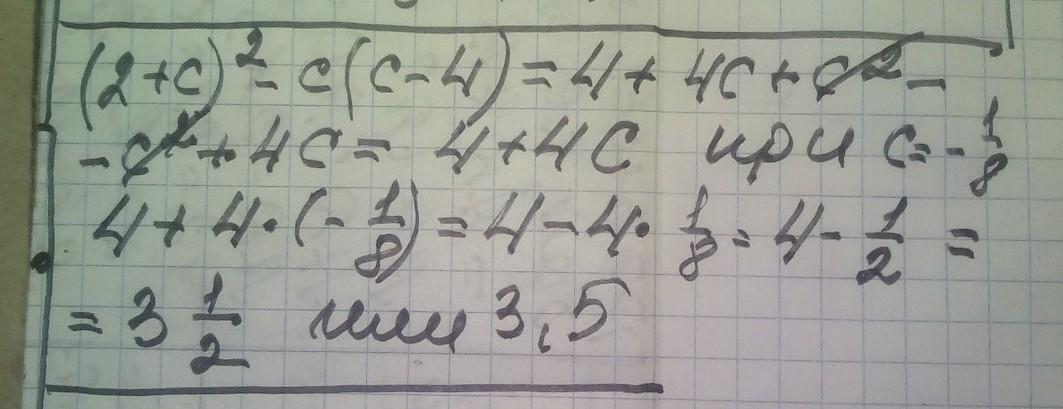 (2+c)² - c(c-4) = 4 + 4c + c² -
- c² + 4c = 4+4c при c = -1/8
4 + 4·(-1/8) = 4 - 4·1/8 = 4 - 1/2 =
= 3 1/2 или 3,5